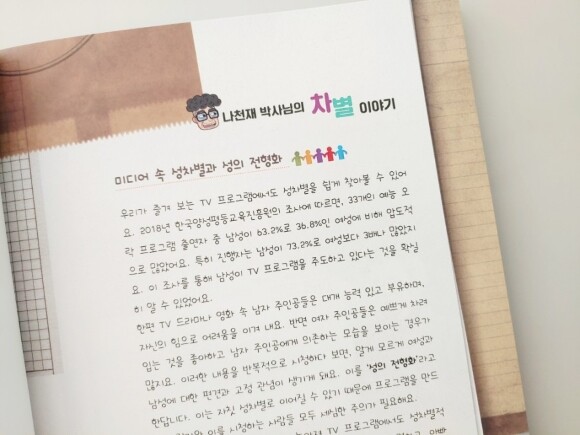 나천재 박사님의 차별 이야기
미디어 속 성차별과 성의 전형화
우리가 즐겨 보는 TV 프로그램에서도 성차별을 쉽게 찾아볼 수 있어
요. 2018년 한국양성평등교육진흥원의 조사에 따르면, 33개의 예능 오
락 프로그램 출연자 중 남성이 63.2%로 36.8%인 여성에 비해 압도적
으로 많았어요. 특히 진행자는 남성이 73.2%로 여성보다 3배나 많았지
요. 이 조사를 통해 남성이 TV 프로그램을 주도하고 있다는 것을 확실
히 알 수 있었어요.
한편 TV 드라마나 영화 속 남자 주인공들은 대개 능력 있고 부유하며,
자신의 힘으로 어려움을 이겨 내요. 반면 여자 주인공들은 예쁘게 차려
입는 것을 좋아하고 남자 주인공에게 의존하는 모습을 보이는 경우가
많지요. 이러한 내용을 반복적으로 시청하다 보면, 알게 모르게 여성과
남성에 대한 편견과 고정 관념이 생기게 돼요. 이를 '성의 전형화'라고
한답니다. 이는 자칫 성차별로 이어질 수 있기 때문에 프로그램을 만드
이를 시청하는 사람들 모두 세심한 주의가 필요해요.
TV 프로그램에서도 성차별적